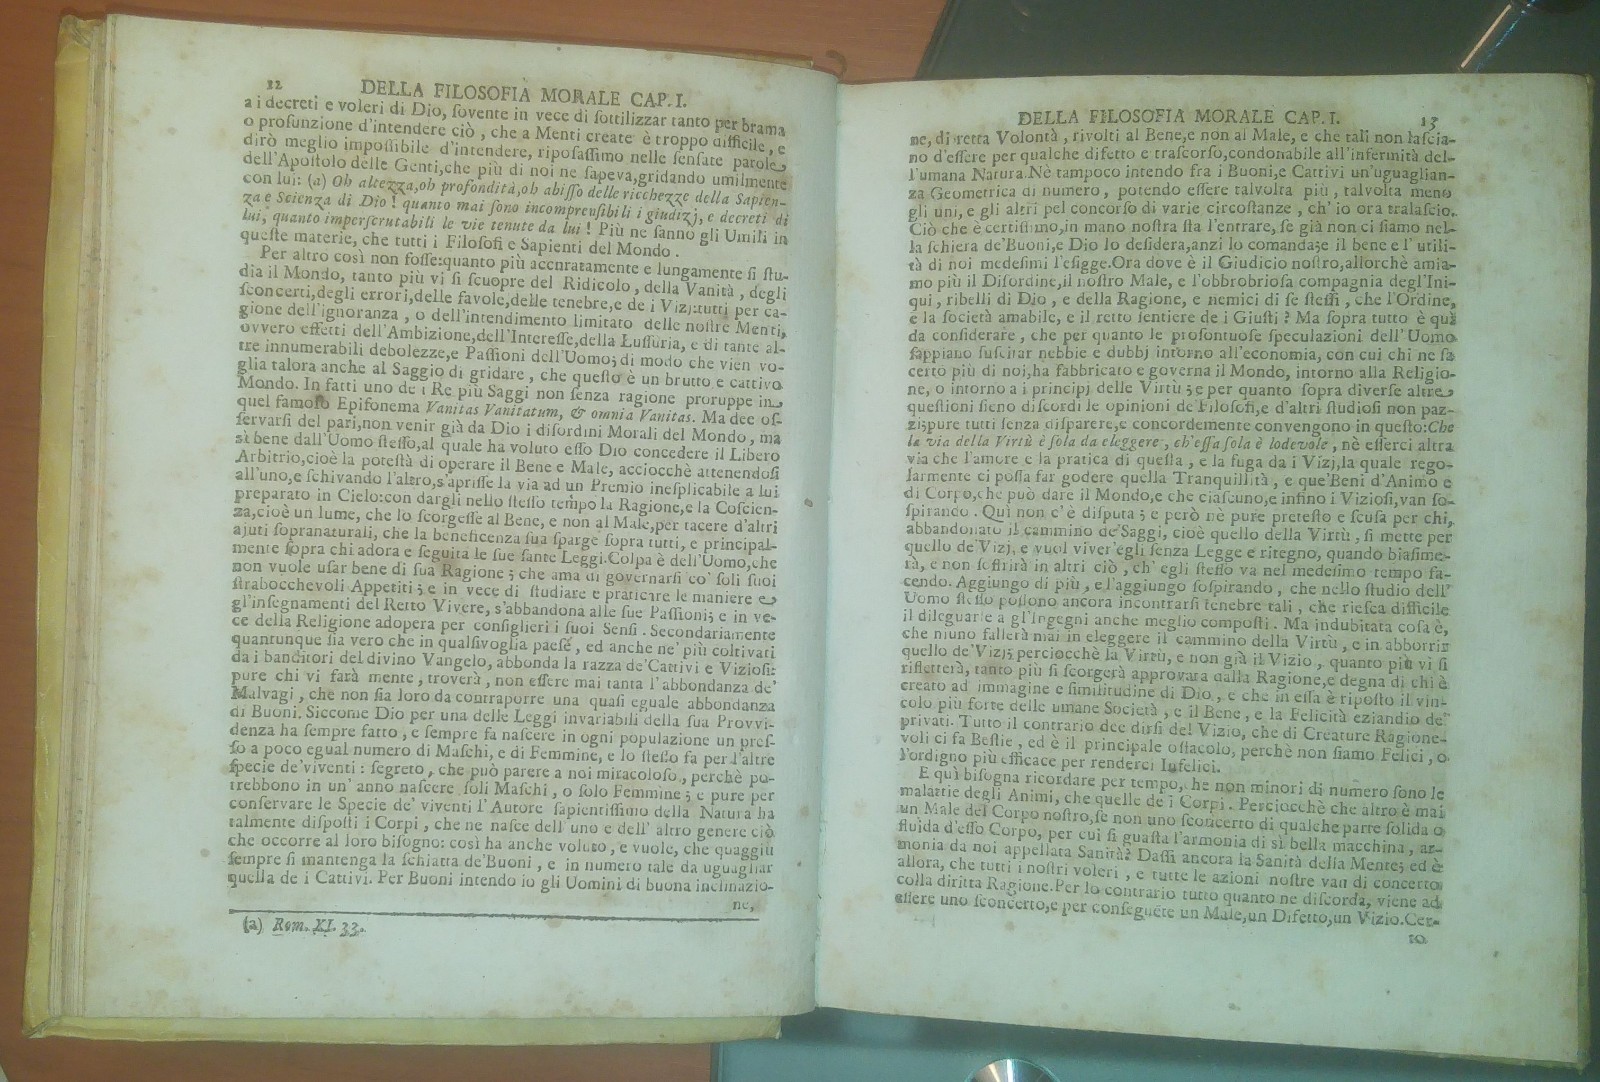 12 DELLA FILOSOFIA MORALE CAP. I.
a i decreti e voleri di Dio, ſovente in vece di ſottilizzar tanto per brama
o proſunzione d'intendere ciò, che a Menti create è troppo difficile, e
dirò meglio impoſſibile d'intendere, ripoſaſſimo nelle ſenſate parole
dell'Apoſtolo delle Genti, che più di noi ne ſapeva, gridando umilmente
con lui: (a) Oh altezza, oh profondità, oh abiſſo delle ricchezze della Sapien-
za e Scienza di Dio! quanto mai ſono incompreuſibili i giudizj, e decreti di
lui, quanto imperſcrutabili le vie tenute da lui! Più ne ſanno gli Umili in
queſte materie, che tutti i Filoſofi e Sapienti del Mondo.
Per altro così non foſſe: quanto più accuratamente e lungamente ſi ſtu-
dia il Mondo, tanto più vi ſi ſcuopre del Ridicolo, della Vanità, degli
ſconcerti, degli errori, delle favole, delle tenebre, e de i Vizj: tutti per ca-
gione dell'ignoranza, o dell'intendimento limitato delle noſtre Menti,
ovvero effetti dell'Ambizione, dell'Intereſſe, della Luſſuria, e di tante al-
tre innumerabili debolezze, e Paſſioni dell'Uomo; di modo che vien vo-
glia talora anche al Saggio di gridare, che queſto è un brutto e cattivo
Mondo. In fatti uno de i Re più Saggi non ſenza ragione proruppe in
quel famoſo Epifonema Vanitas Vanitatum, & omnia Vanitas. Ma dee oſ-
ſervarſi del pari, non venir già da Dio i diſordini Morali del Mondo, ma
sì bene dall'Uomo ſteſſo, al quale ha voluto eſſo Dio concedere il Libero
Arbitrio, cioè la poteſtà di operare il Bene e Male, acciocchè attenendoſi
all'uno, e ſchivando l'altro, s'apriſſe la via ad un Premio ineſplicabile a lui
preparato in Cielo: con dargli nello ſteſſo tempo la Ragione, e la Coſcien-
za, cioè un lume, che lo ſcorgeſſe al Bene, e non al Male, per tacere d'altri
ajuti ſopranaturali, che la beneficenza ſua ſparge ſopra tutti, e principal-
mente ſopra chi adora e ſeguita le ſue ſante Leggi. Colpa è dell'Uomo, che
non vuole uſar bene di ſua Ragione; che ama di governarſi co' ſoli ſuoi
ſtrabocchevoli Appetiti; e in vece di ſtudiare e praticare le maniere e
gl'inſegnamenti del Retto Vivere, s'abbandona alle ſue Paſſioni; e in ve-
ce della Religione adopera per conſiglieri i ſuoi Senſi. Secondariamente
quantunque ſia vero che in qualſivoglia paeſe, ed anche ne' più coltivati
da i banditori del divino Vangelo, abbonda la razza de'Cattivi e Vizioſi:
pure chi vi farà mente, troverà, non eſſere mai tanta l'abbondanza de'
Malvagi, che non ſia loro da contraporre una quaſi eguale abbondanza
di Buoni. Siccome Dio per una delle Leggi invariabili della ſua Provvi-
denza ha ſempre fatto, e ſempre fa naſcere in ogni populazione un preſ-
ſo a poco egual numero di Maſchi, e di Femmine, e lo ſteſſo fa per l'altre
ſpecie de'viventi: ſegreto, che può parere a noi miracoloſo, perchè po-
trebbono in un' anno naſcere ſoli Maſchi, o ſolo Femmine; e pure per
conſervare le Specie de' viventi l'Autore ſapientiſſimo della Natura ha
talmente diſpoſti i Corpi, che ne naſce dell'uno e dell' altro genere ciò
che occorre al loro biſogno: così ha anche voluto, e vuole, che quaggiù
ſempre ſi mantenga la ſchiatta de'Buoni, e in numero tale da uguagliar
quella de i Cattivi. Per Buoni intendo io gli Uomini di buona inclinazio-
ne,
(a) Rom. XI. 33.
DELLA FILOSOFIA MORALE CAP. I. 13
ne, di retta Volontà, rivolti al Bene, e non al Male, e che tali non laſcia-
no d'eſſere per qualche difetto e traſcorſo, condonabile all'infermità del-
l'umana Natura. Nè tampoco intendo fra i Buoni, e Cattivi un'uguaglian-
za Geometrica di numero, potendo eſſere talvolta più, talvolta meno
gli uni, e gli altri pel concorſo di varie circoſtanze, ch' io ora tralaſcio.
Ciò che è certiſſimo, in mano noſtra ſta l'entrare, ſe già non ci ſiamo nel-
la ſchiera de'Buoni, e Dio lo deſidera, anzi lo comanda; e il bene e l'utili-
tà di noi medeſimi l'eſigge. Ora dove è il Giudicio noſtro, allorchè amia-
mo più il Diſordine, il noſtro Male, e l'obbrobrioſa compagnia degl'Ini-
qui, ribelli di Dio, e della Ragione, e nemici di ſe ſteſſi, che l'Ordine,
e la ſocietà amabile, e il retto ſentiere de i Giuſti? Ma ſopra tutto è quì
da conſiderare, che per quanto le proſontuoſe ſpeculazioni dell'Uomo
ſappiano ſuſcitar nebbie e dubbj intorno all'economia, con cui chi ne ſa
certo più di noi, ha fabbricato e governa il Mondo, intorno alla Religio-
ne, o intorno a i principj delle Virtù; e per quanto ſopra diverſe altre
queſtioni ſieno diſcordi le opinioni de'Filoſofi, e d'altri ſtudioſi non paz-
zi; pure tutti ſenza diſparere, e concordemente convengono in queſto: Che
la via della Virtù è ſola da eleggere, ch'eſſa ſola è lodevole, nè eſſerci altra
via che l'amore e la pratica di queſta, e la fuga da i Vizj, la quale rego-
larmente ci poſſa far godere quella Tranquillità, e que'Beni d'Animo e
di Corpo, che può dare il Mondo, e che ciaſcuno, e infino i Vizioſi, van ſo-
ſpirando. Quì non c'è diſputa; e però nè pure preteſto e ſcuſa per chi,
abbandonato il cammino de'Saggi, cioè quello della Virtù, ſi mette per
quello de'Vizj, e vuol viver'egli ſenza Legge e ritegno, quando biaſime-
rà, e non ſoffrirà in altri ciò, ch' egli ſteſſo va nel medeſimo tempo fa-
cendo. Aggiungo di più, e l'aggiungo ſoſpirando, che nello ſtudio dell'
Uomo ſteſſo poſſono ancora incontrarſi tenebre tali, che rieſca difficile
il dileguarle a gl'Ingegni anche meglio compoſti. Ma indubitata coſa è,
che niuno fallerà mai in eleggere il cammino della Virtù, e in abborrir
quello de'Vizj; perciocchè la Virtù, e non già il Vizio, quanto più vi ſi
rifletterà, tanto più ſi ſcorgerà approvata dalla Ragione, e degna di chi è
creato ad immagine e ſimilitudine di Dio, e che in eſſa è ripoſto il vin-
colo più forte delle umane Società, e il Bene, e la Felicità eziandio de'
privati. Tutto il contrario dee dirſi del Vizio, che di Creature Ragione-
voli ci fa Beſtie, ed è il principale oſtacolo, perchè non ſiamo Felici, o
l'ordigno più efficace per renderci Infelici.
E quì biſogna ricordare per tempo, che non minori di numero ſono le
malattie degli Animi, che quelle de i Corpi. Perciocchè che altro è mai
un Male del Corpo noſtro, ſe non uno ſconcerto di qualche parte ſolida o
fluida d'eſſo Corpo, per cui ſi guaſta l'armonia di sì bella macchina, ar-
monia da noi appellata Sanità? Daſſi ancora la Sanità della Mente; ed è
allora, che tutti i noſtri voleri, e tutte le azioni noſtre van di concerto
colla diritta Ragione. Per lo contrario tutto quanto ne diſcorda, viene ad
eſſere uno ſconcerto, e per conſeguente un Male, un Difetto, un Vizio. Cer-
to